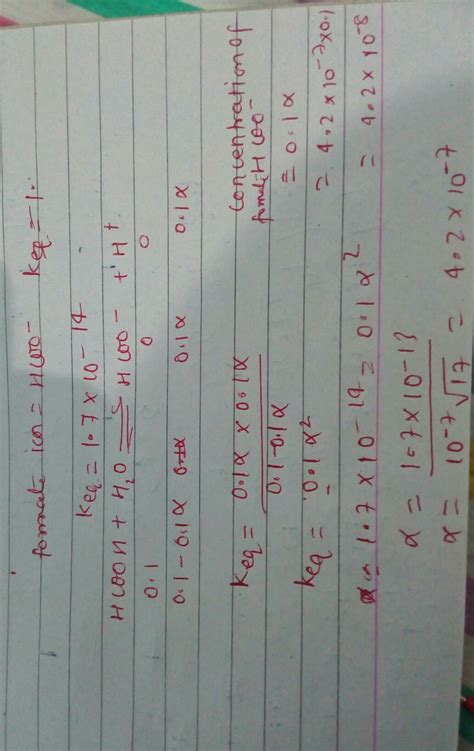 formate ion = HCOO⁻ Keq = 1.
Keq = 1.7 × 10⁻¹⁴
HCOOH + H₂O ⇌ HCOO⁻ + H⁺
0.1 0 0
0.1 - 0.1α 0.1α 0.1α
Keq = 0.1α × 0.1α / 0.1 - 0.1α
Keq = 0.1α²
1.7 × 10⁻¹⁴ = 0.1α²
α = √1.7 × 10⁻¹³
α = 10⁻⁷ √17 = 4.2 × 10⁻⁷
Concentration of
formate HCOO⁻
= 0.1α
= 4.2 × 10⁻⁷ × 0.1
= 4.2 × 10⁻⁸